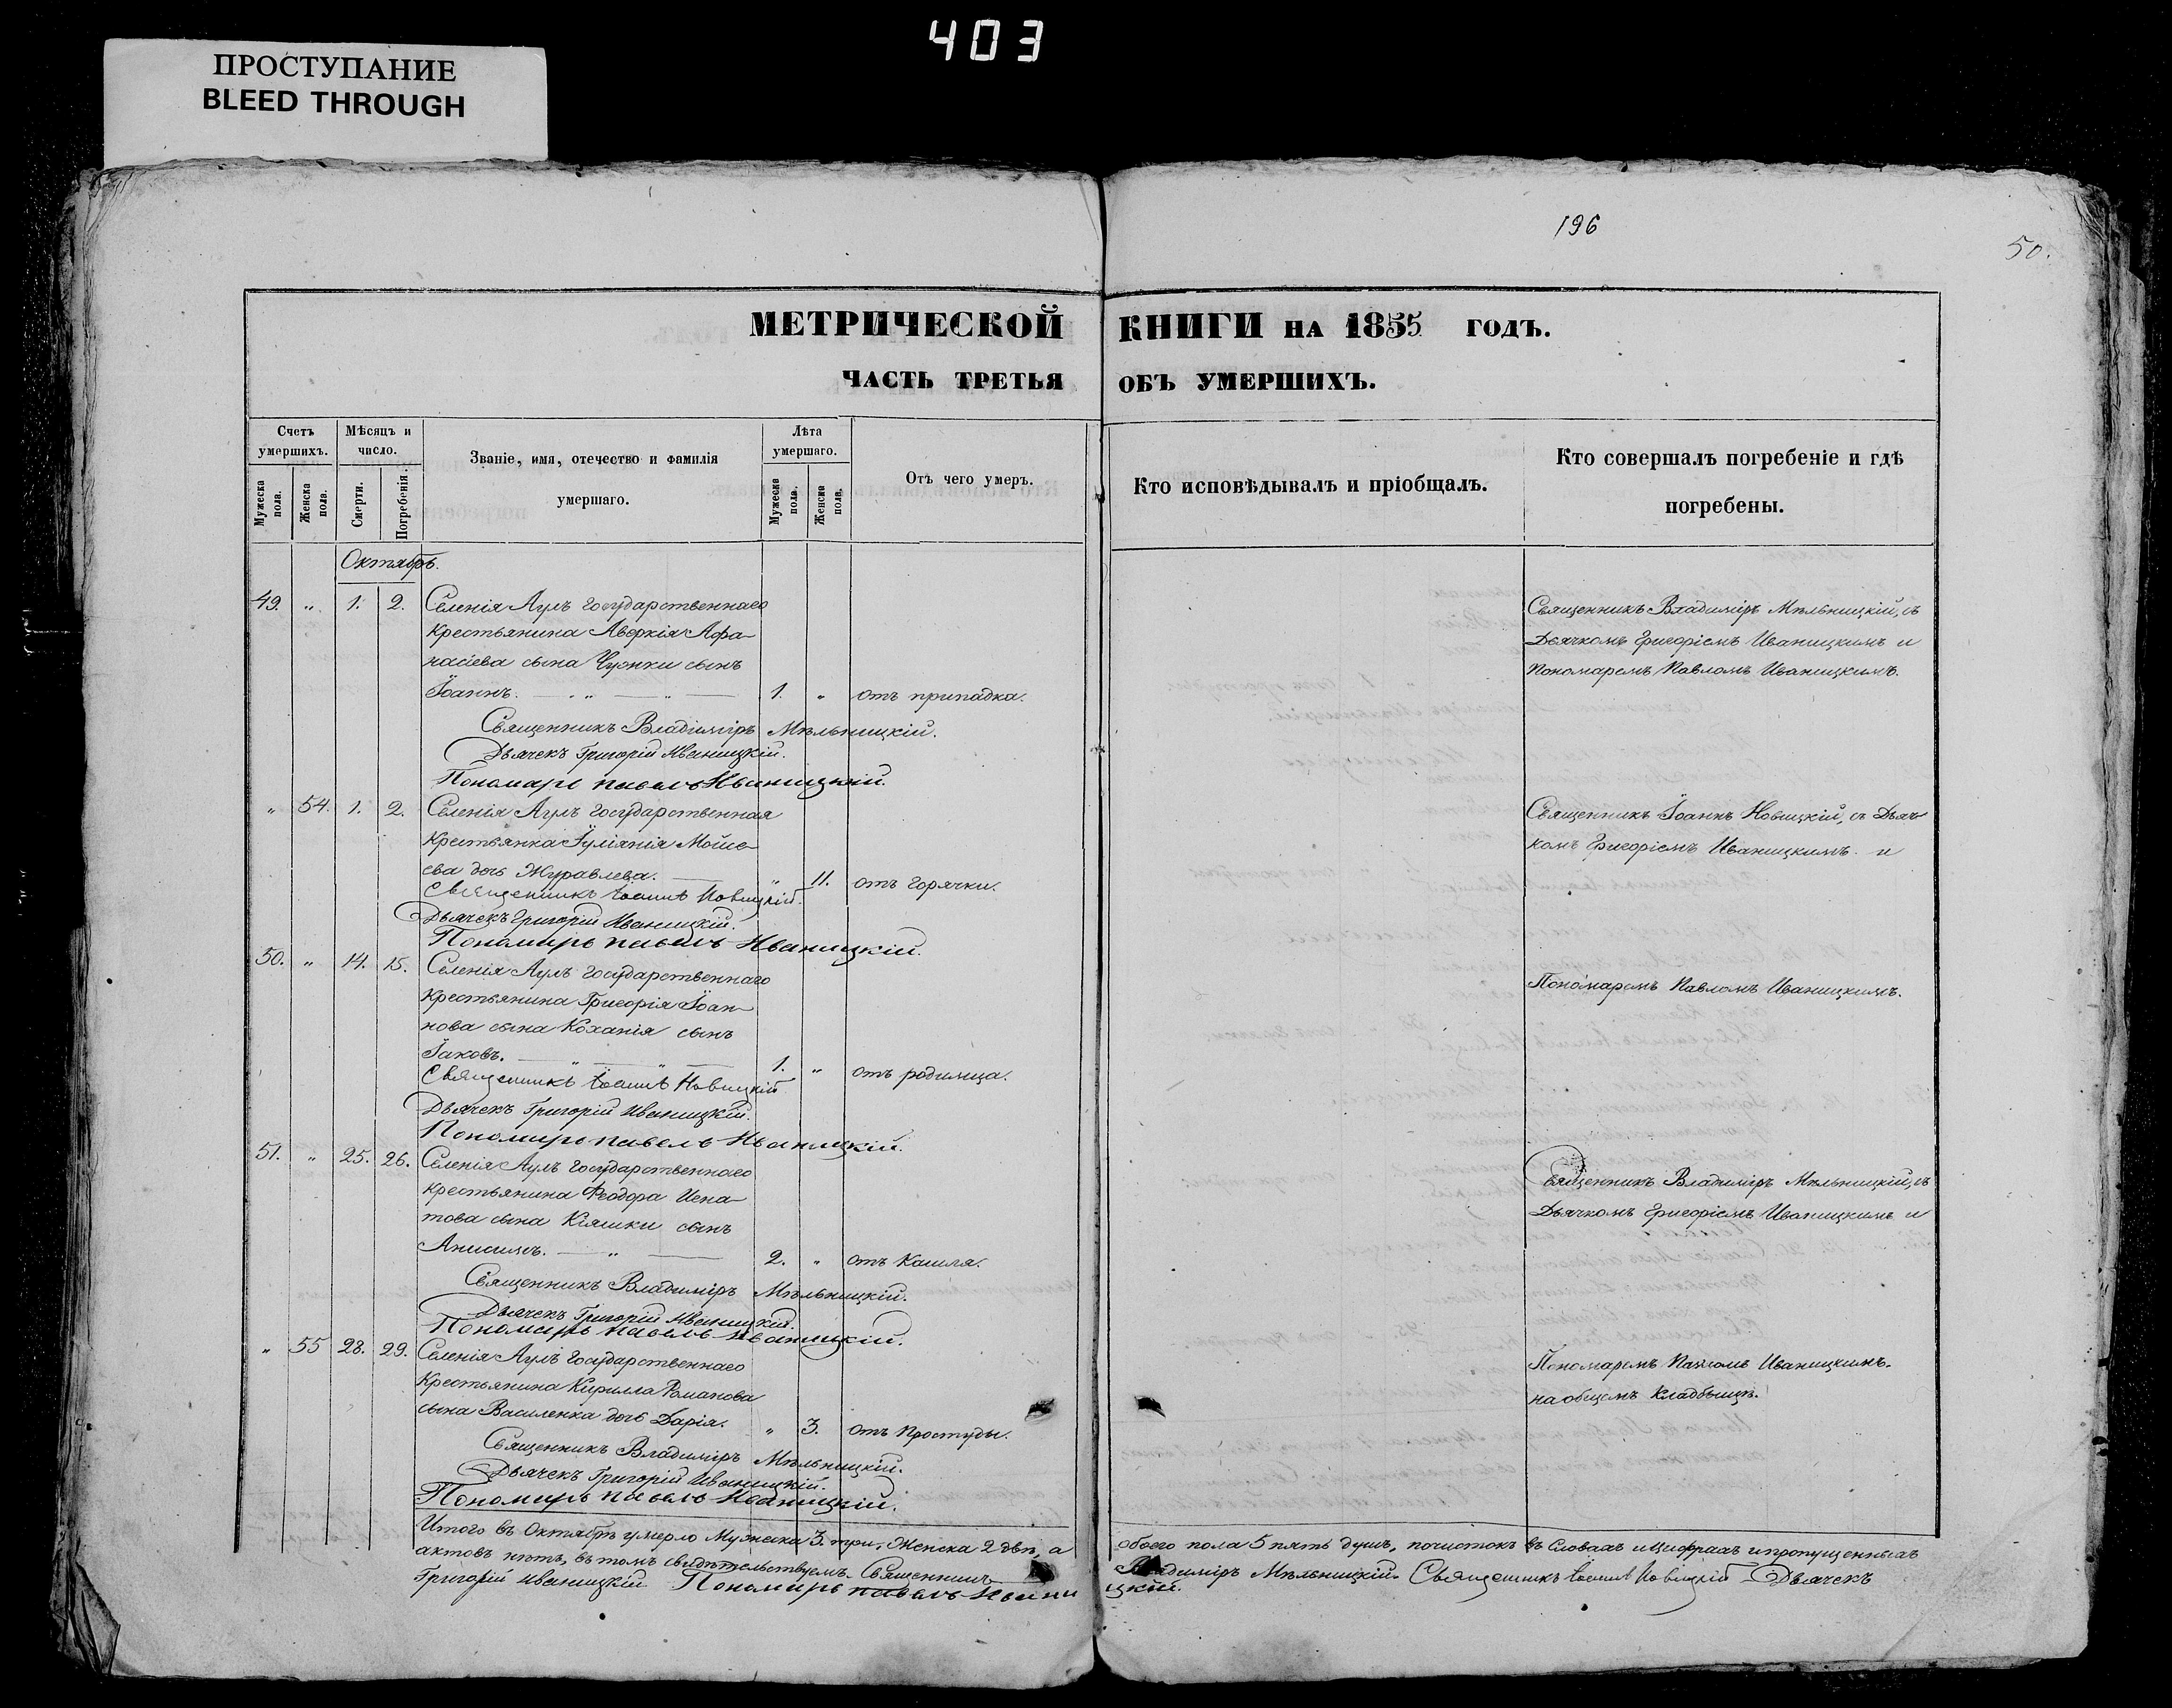 403
ПРОСТУПАНИЕ
BLEED THROUGH
196
50.
МЕТРИЧЕСКОЙ КНИГИ НА 1855 ГОДЪ.
ЧАСТЬ ТРЕТЬЯ ОБЪ УМЕРШИХЪ.
Счетъ умершихъ.
Мужеска пола.
Женска пола.
Мѣсяцъ и число.
Смерти.
Погребенія.
Званіе, имя, отечество и фамилія
умершаго.
Лѣта умершаго.
Мужеска пола.
Женска пола.
Отъ чего умеръ.
Кто исповѣдывалъ и пріобщалъ.
Кто совершалъ погребеніе и гдѣ
погребены.
Октябрь.
49. " 1. 2. Селенія Аулъ государственнаго
крестьянина Аверкія Афа-
насіева сына Чуйки сынъ
Іоаннъ. 1. " отъ припадка.
Священникъ Владиміръ Мѣльницкій, съ
Дьячкомъ Григоріемъ Иваницкимъ и
Пономаремъ Павломъ Иваницкимъ.
Священникъ Владиміръ Мѣльницкій.
Дьячекъ Григорій Иваницкій.
Пономарь Павелъ Иваницкій.
" 54. 1. 2. Селенія Аулъ государственная
крестьянка Іуліянія Моисе-
ева дочь Журавлева. " 11. отъ горячки.
Священникъ Іоаннъ Новицкій, съ Дьяч-
комъ Григоріемъ Иваницкимъ и
Священникъ Іоаннъ Новицкій.
Дьячекъ Григорій Иваницкій.
Пономарь Павелъ Иваницкій.
50. " 14. 15. Селенія Аулъ государственнаго
крестьянина Григорія Іоан-
нова сына Коханія сынъ
Іаковъ. 1. " отъ родимца.
Пономаремъ Павломъ Иваницкимъ.
Священникъ Іоаннъ Новицкій
Дьячекъ Григорій Иваницкій.
Пономарь Павелъ Иваницкій.
51. " 25. 26. Селенія Аулъ государственнаго
крестьянина Феодора Игна-
това сына Кіяшки сынъ
Анисимъ. 2. " отъ кашля.
Священникъ Владиміръ Мѣльницкій, съ
Дьячкомъ Григоріемъ Иваницкимъ и
Священникъ Владиміръ Мѣльницкій.
Дьячекъ Григорій Иваницкій.
Пономарь Павелъ Иваницкій.
" 55 28. 29. Селенія Аулъ государственнаго
крестьянина Кирилла Романова
сына Василенка дочь Дарія. " 3. отъ простуды.
Пономаремъ Павломъ Иваницкимъ.
на общемъ кладбищѣ.
Священникъ Владиміръ Мѣльницкій.
Дьячекъ Григорій Иваницкій.
Пономарь Павелъ Иваницкій.
Итого въ Октябрѣ умерло Мужеска 3. три, Женска 2 двѣ, а обоего пола 5 пять душъ, почистокъ въ словахъ и цифрахъ и пропущенныхъ
актовъ нѣтъ, въ томъ свидѣтельствуемъ. Священникъ Владиміръ Мѣльницкій. Священникъ Іоаннъ Новицкій Дьячекъ
Григорій Иваницкій Пономарь Павелъ Иваницкій.